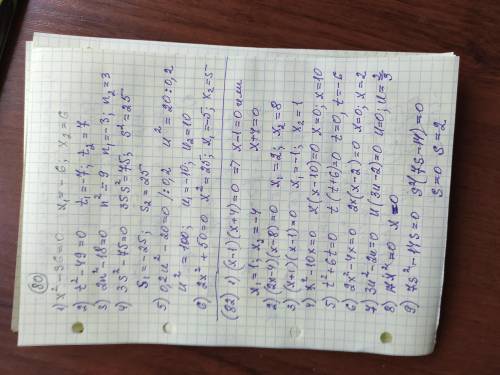 (80)
1) x² - 36 = 0 x₁ = -6; x₂ = 6
2) t² - 49 = 0 t₁ = -7; t₂ = 7
3) 2n² - 18 = 0 n² = 9 n₁ = -3; n₂ = 3
4) 3S² - 75 = 0 3S² = 75; S² = 25
S₁ = -25; S₂ = 25
5) 0,2u² - 20 = 0 /:0,2 u² = 20:0,2
u² = 100; u₁ = -10; u₂ = 10
6) 2x² + 50 = 0 x² = 25; x₁ = -5; x₂ = 5
(82) 1) (x-1)(x+4) = 0 => x-1 = 0 или
x₁ = 1; x₂ = -4 x+4 = 0
2) (x-8) = 0 x₁ = 2; x₂ = 8
3) (x+1)(x-1) = 0 x₁ = -1; x₂ = 1
4) x² - 10x = 0 x(x-10) = 0 x = 0; x = 10
5) t² + 6t = 0 t(t+6) = 0 t = 0; t = -6
6) 2x² - 4x = 0 2x(x-2) = 0 x = 0; x = 2
7) 3u² - 2u = 0 u(3u-2) = 0 u = 0; u = 2/3
8) 17x² = 0 x = 0
9) 7S² - 14S = 0 S(7S-14) = 0
S = 0 S = 2